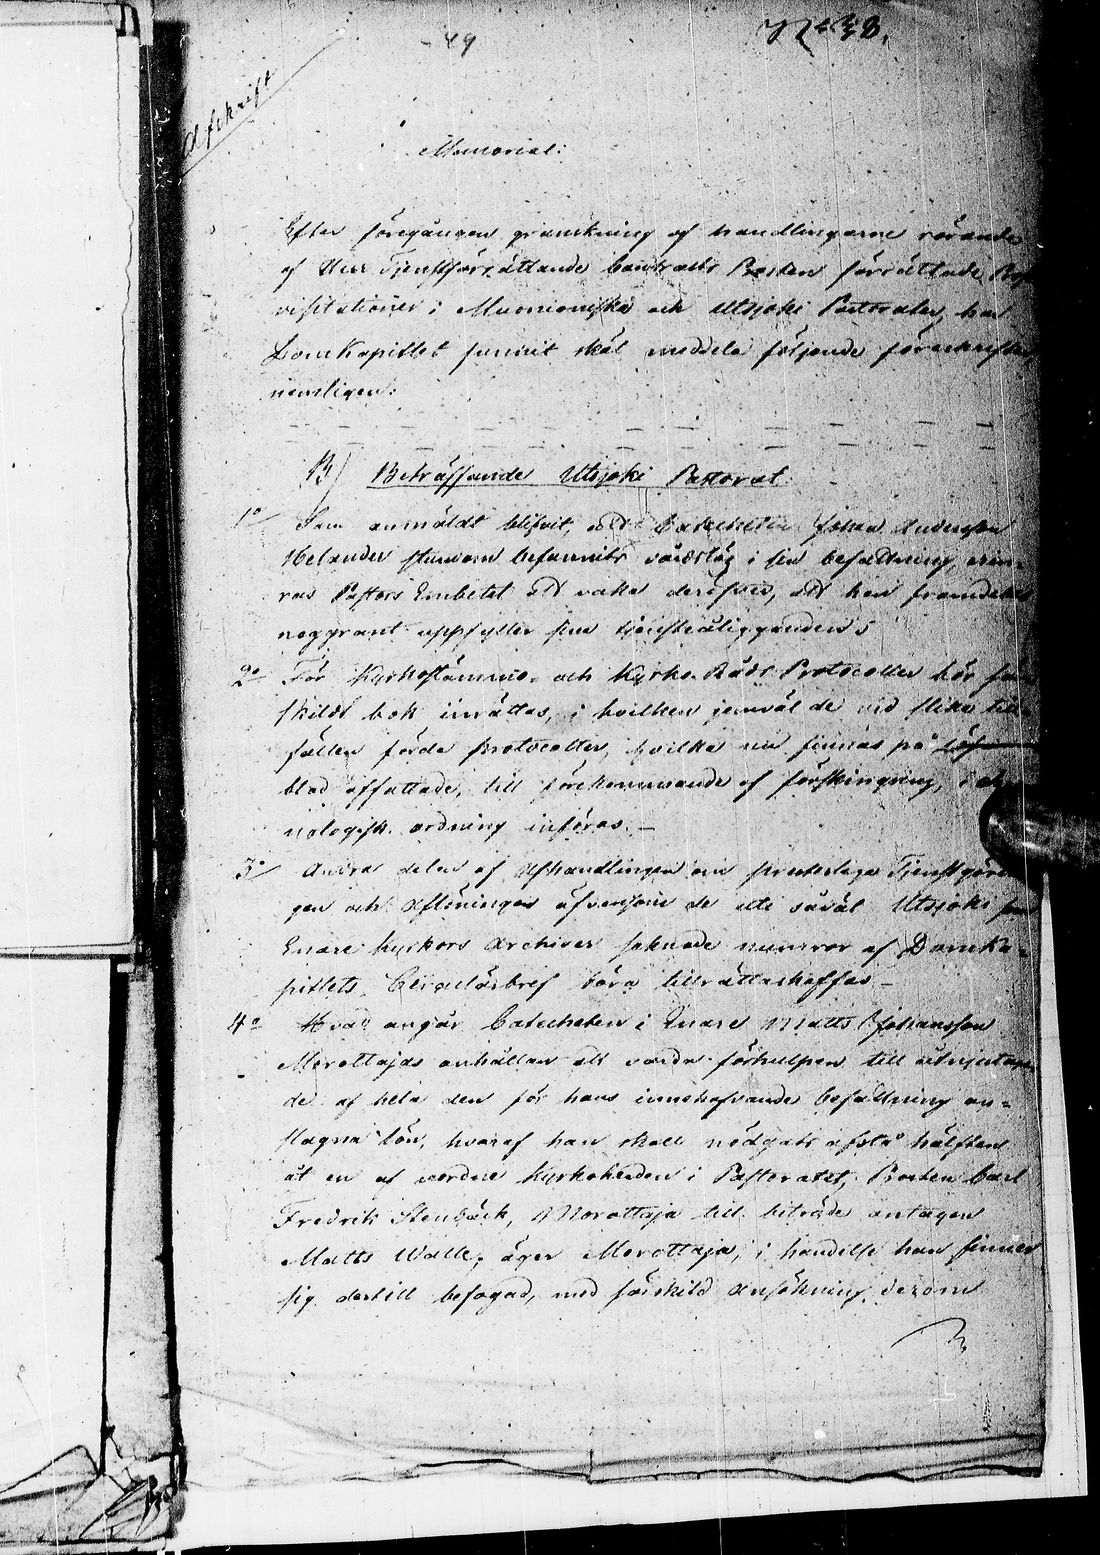 - 49
Nº 38.
Afskrift
Memorial:
Efter föregången granskning af handlingarne rörande
af Herr Tjenstförrättande Contracts Prosten förrättade
visitationer i Muonioniska och Utsjoki Pastorater, har
Domkapitlet funnit skäl meddela följande föreskrifter,
nemligen:
B) Beträffande Utsjoki Pastorat:
1º Som anmäldt blifvit, att Catecheten Johan Andersson
Helander stundom befunnits vårdslög i sin befattning, erin-
ras Pastors Embetet att vaka deröfver, att han framdeles
noggrant uppfyller sina tjensteåligganden;
2º För Kyrkostämmo- och Kyrko-Råds Protocoller bör sär-
skildt bok inrättas, i hvilken jemväl de vid slika till-
fällen förda protocoller, hvilka nu finnas på lösa
blad affattade, till förekommande af förskingring, i chro-
nologisk ordning införas. -
3º Andra delen af Afhandlingen om presterliga Tjenstgörin-
gen och Aflöningen äfvensom de uti såväl Utsjoki som
Enare kyrkors Archiver saknade numror af Domka-
pitlets Circulärbref böra tillrättaskaffas -
4º Hvad angår Catecheten i Enare Matts Johansson
Morottajas anhållan att varda förhulpen till åtnjutan-
de af hela den för hans innehafvande befattning an-
slagna lön, hvaraf han skall nödgats afstå hälften
åt en af vordne Kyrkoherden i Pastoratet, Prosten Carl
Fredrik Stenbäck, Morottaja till biträde antagen
Matts Walle; äger Morottaja, i händelse han finner
sig dertill befogad, med särskild ansökning derom